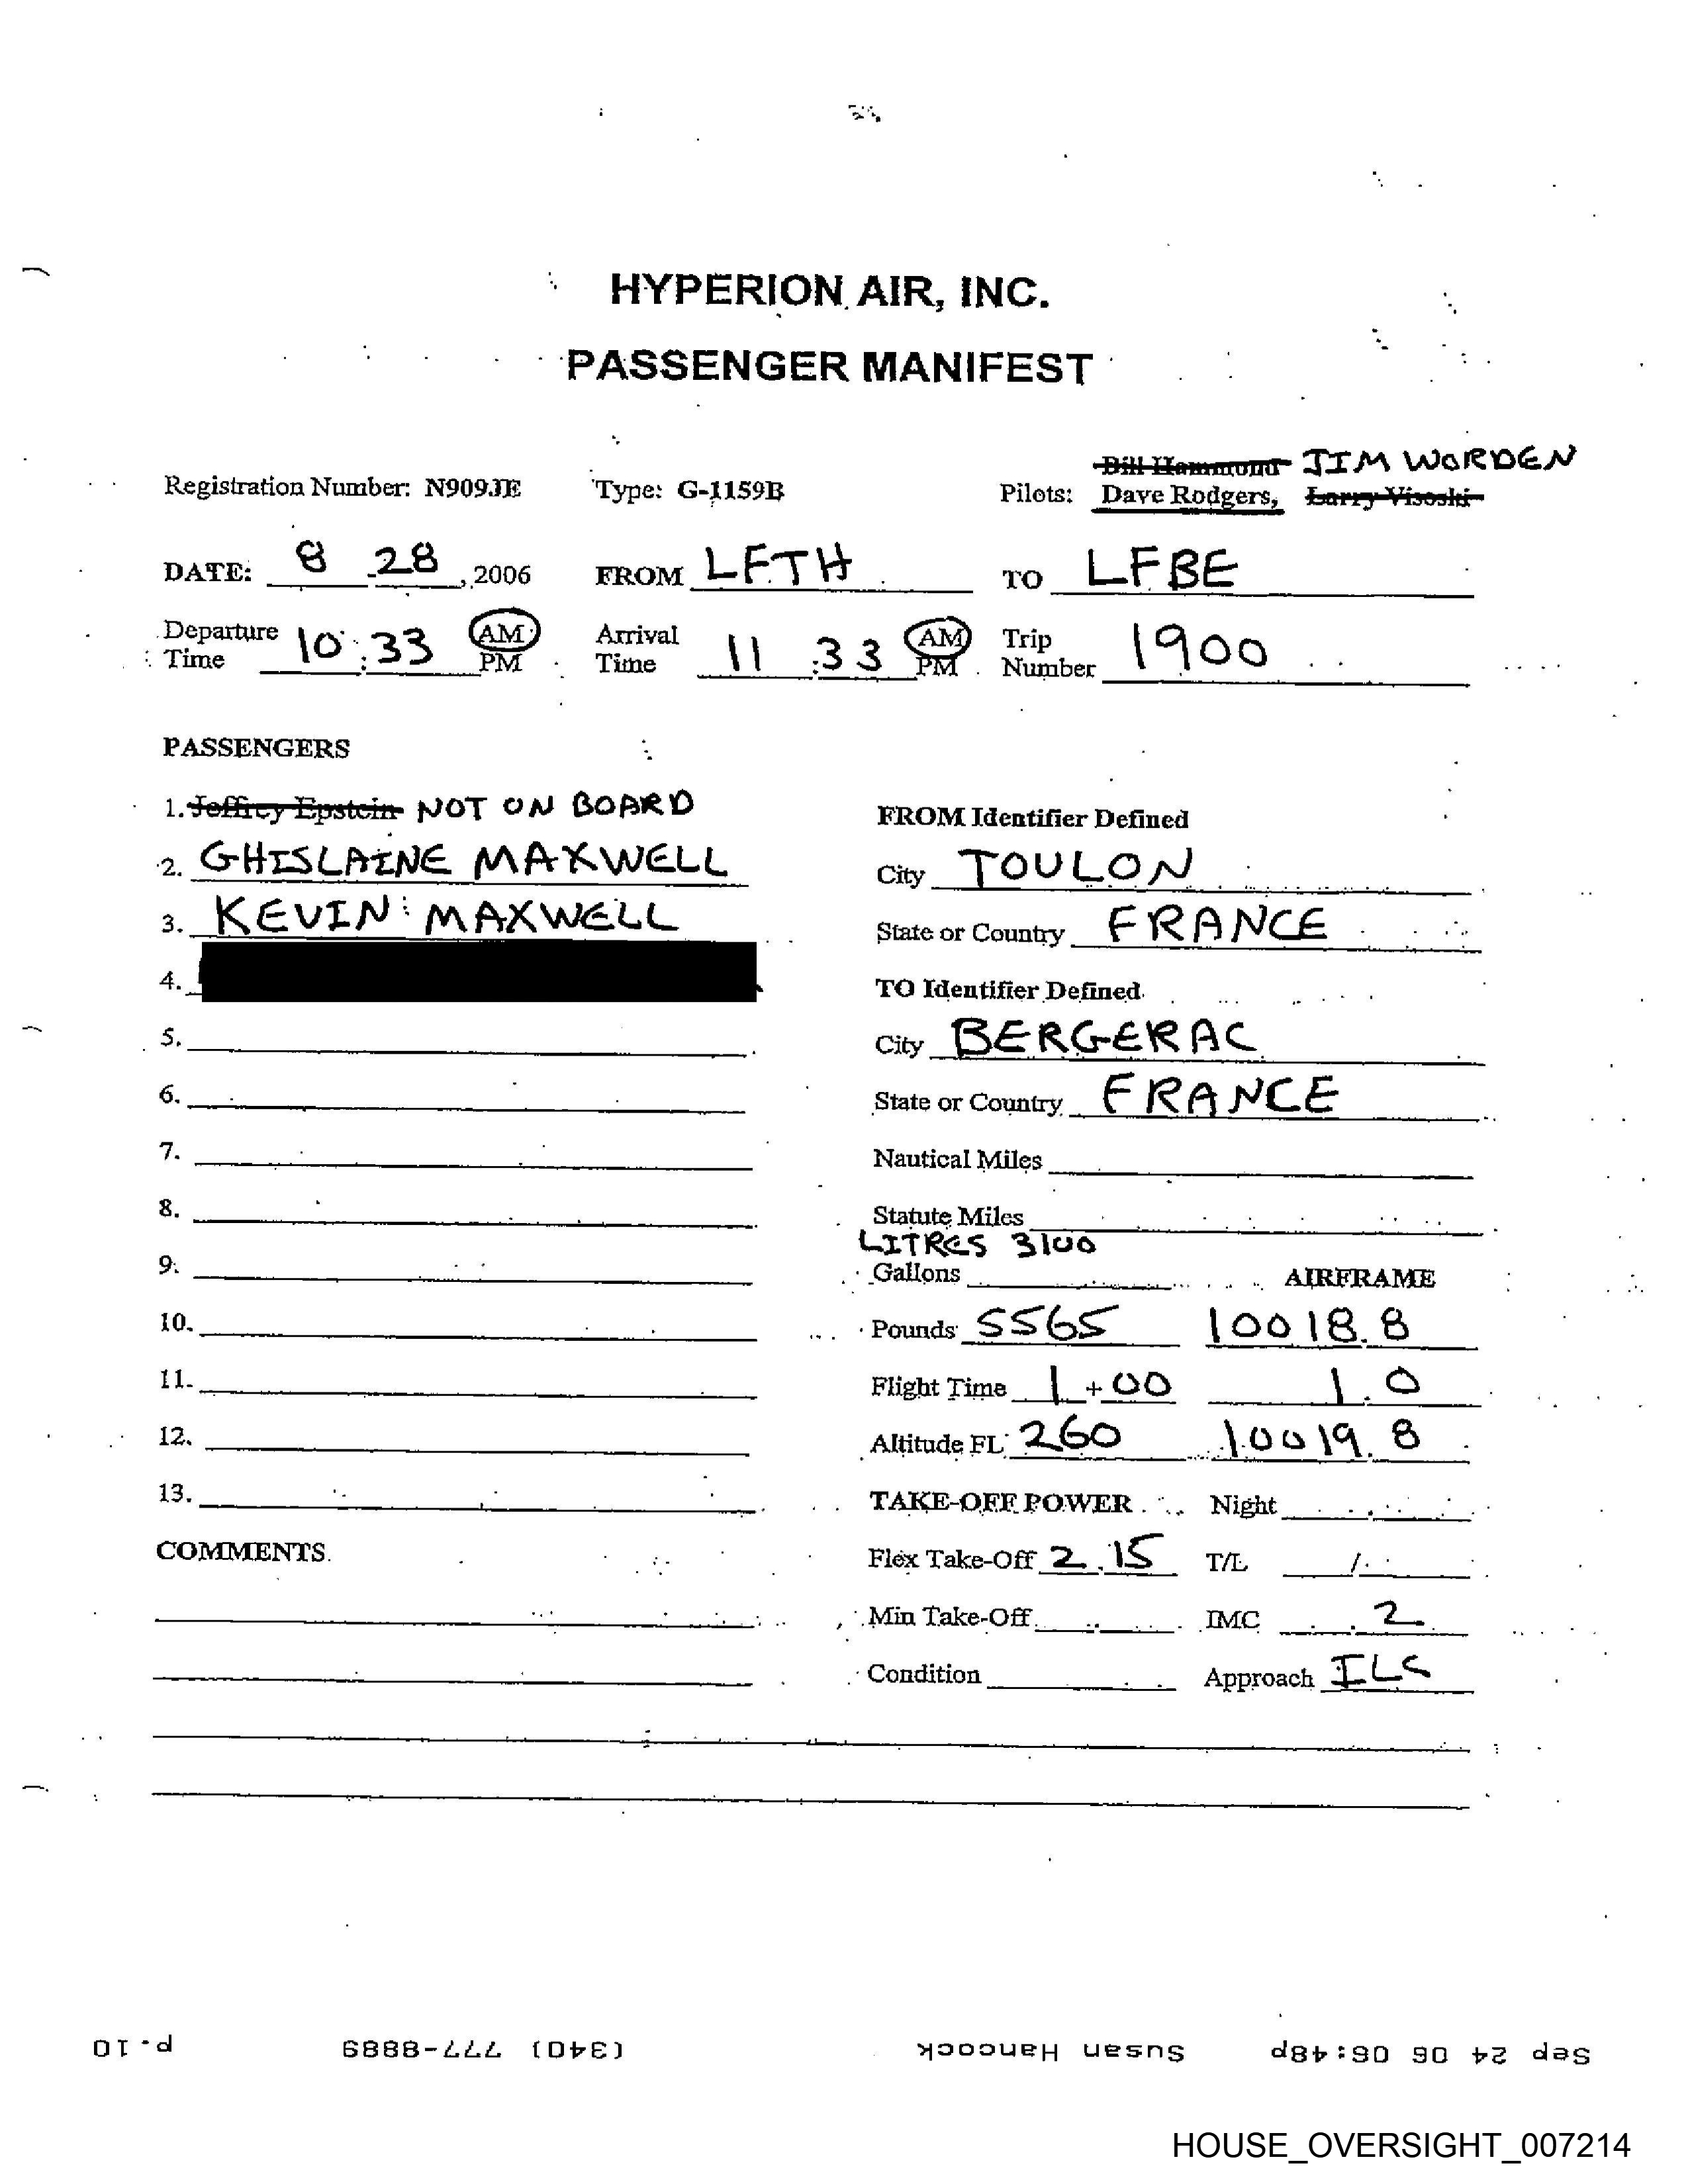 HYPERION AIR, INC.
PASSENGER MANIFEST
Bill Hammond JIM WORDEN
Registration Number: N909JE Type: G-1159B Pilots: Dave Rodgers, Larry Visoski
DATE: 8 28, 2006 FROM LFTH TO LFBE
Departure Time 10:33 AM PM Arrival Time 11:33 AM PM Trip Number 1900
PASSENGERS
1. Jeffrey Epstein NOT ON BOARD
2. GHISLAINE MAXWELL
3. KEVIN MAXWELL
4.
5.
6.
7.
8.
9.
10.
11.
12.
13.
COMMENTS
FROM Identifier Defined
City TOULON
State or Country FRANCE
TO Identifier Defined
City BERGERAC
State or Country FRANCE
Nautical Miles
Statute Miles
LITRES 3100
Gallons AIRFRAME
Pounds 5565 10018.8
Flight Time 1+00 1.0
Altitude FL 260 10019.8
TAKE-OFF POWER Night
Flex Take-Off 2.15 T/L /
Min Take-Off IMC .2
Condition Approach ILS
Sep 24 06 06:48p Susan Hancock (340) 777-8889 p.10
HOUSE_OVERSIGHT_007214